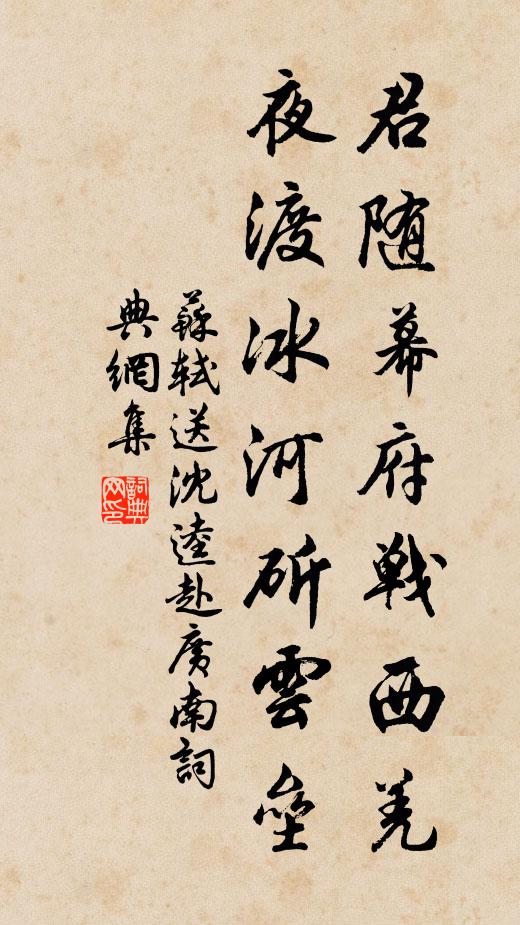 君随幕府戦西羌
夜渡冰河斫雲壘
蘇軾送沈逵赴廣南詞
典網集
詞典網印